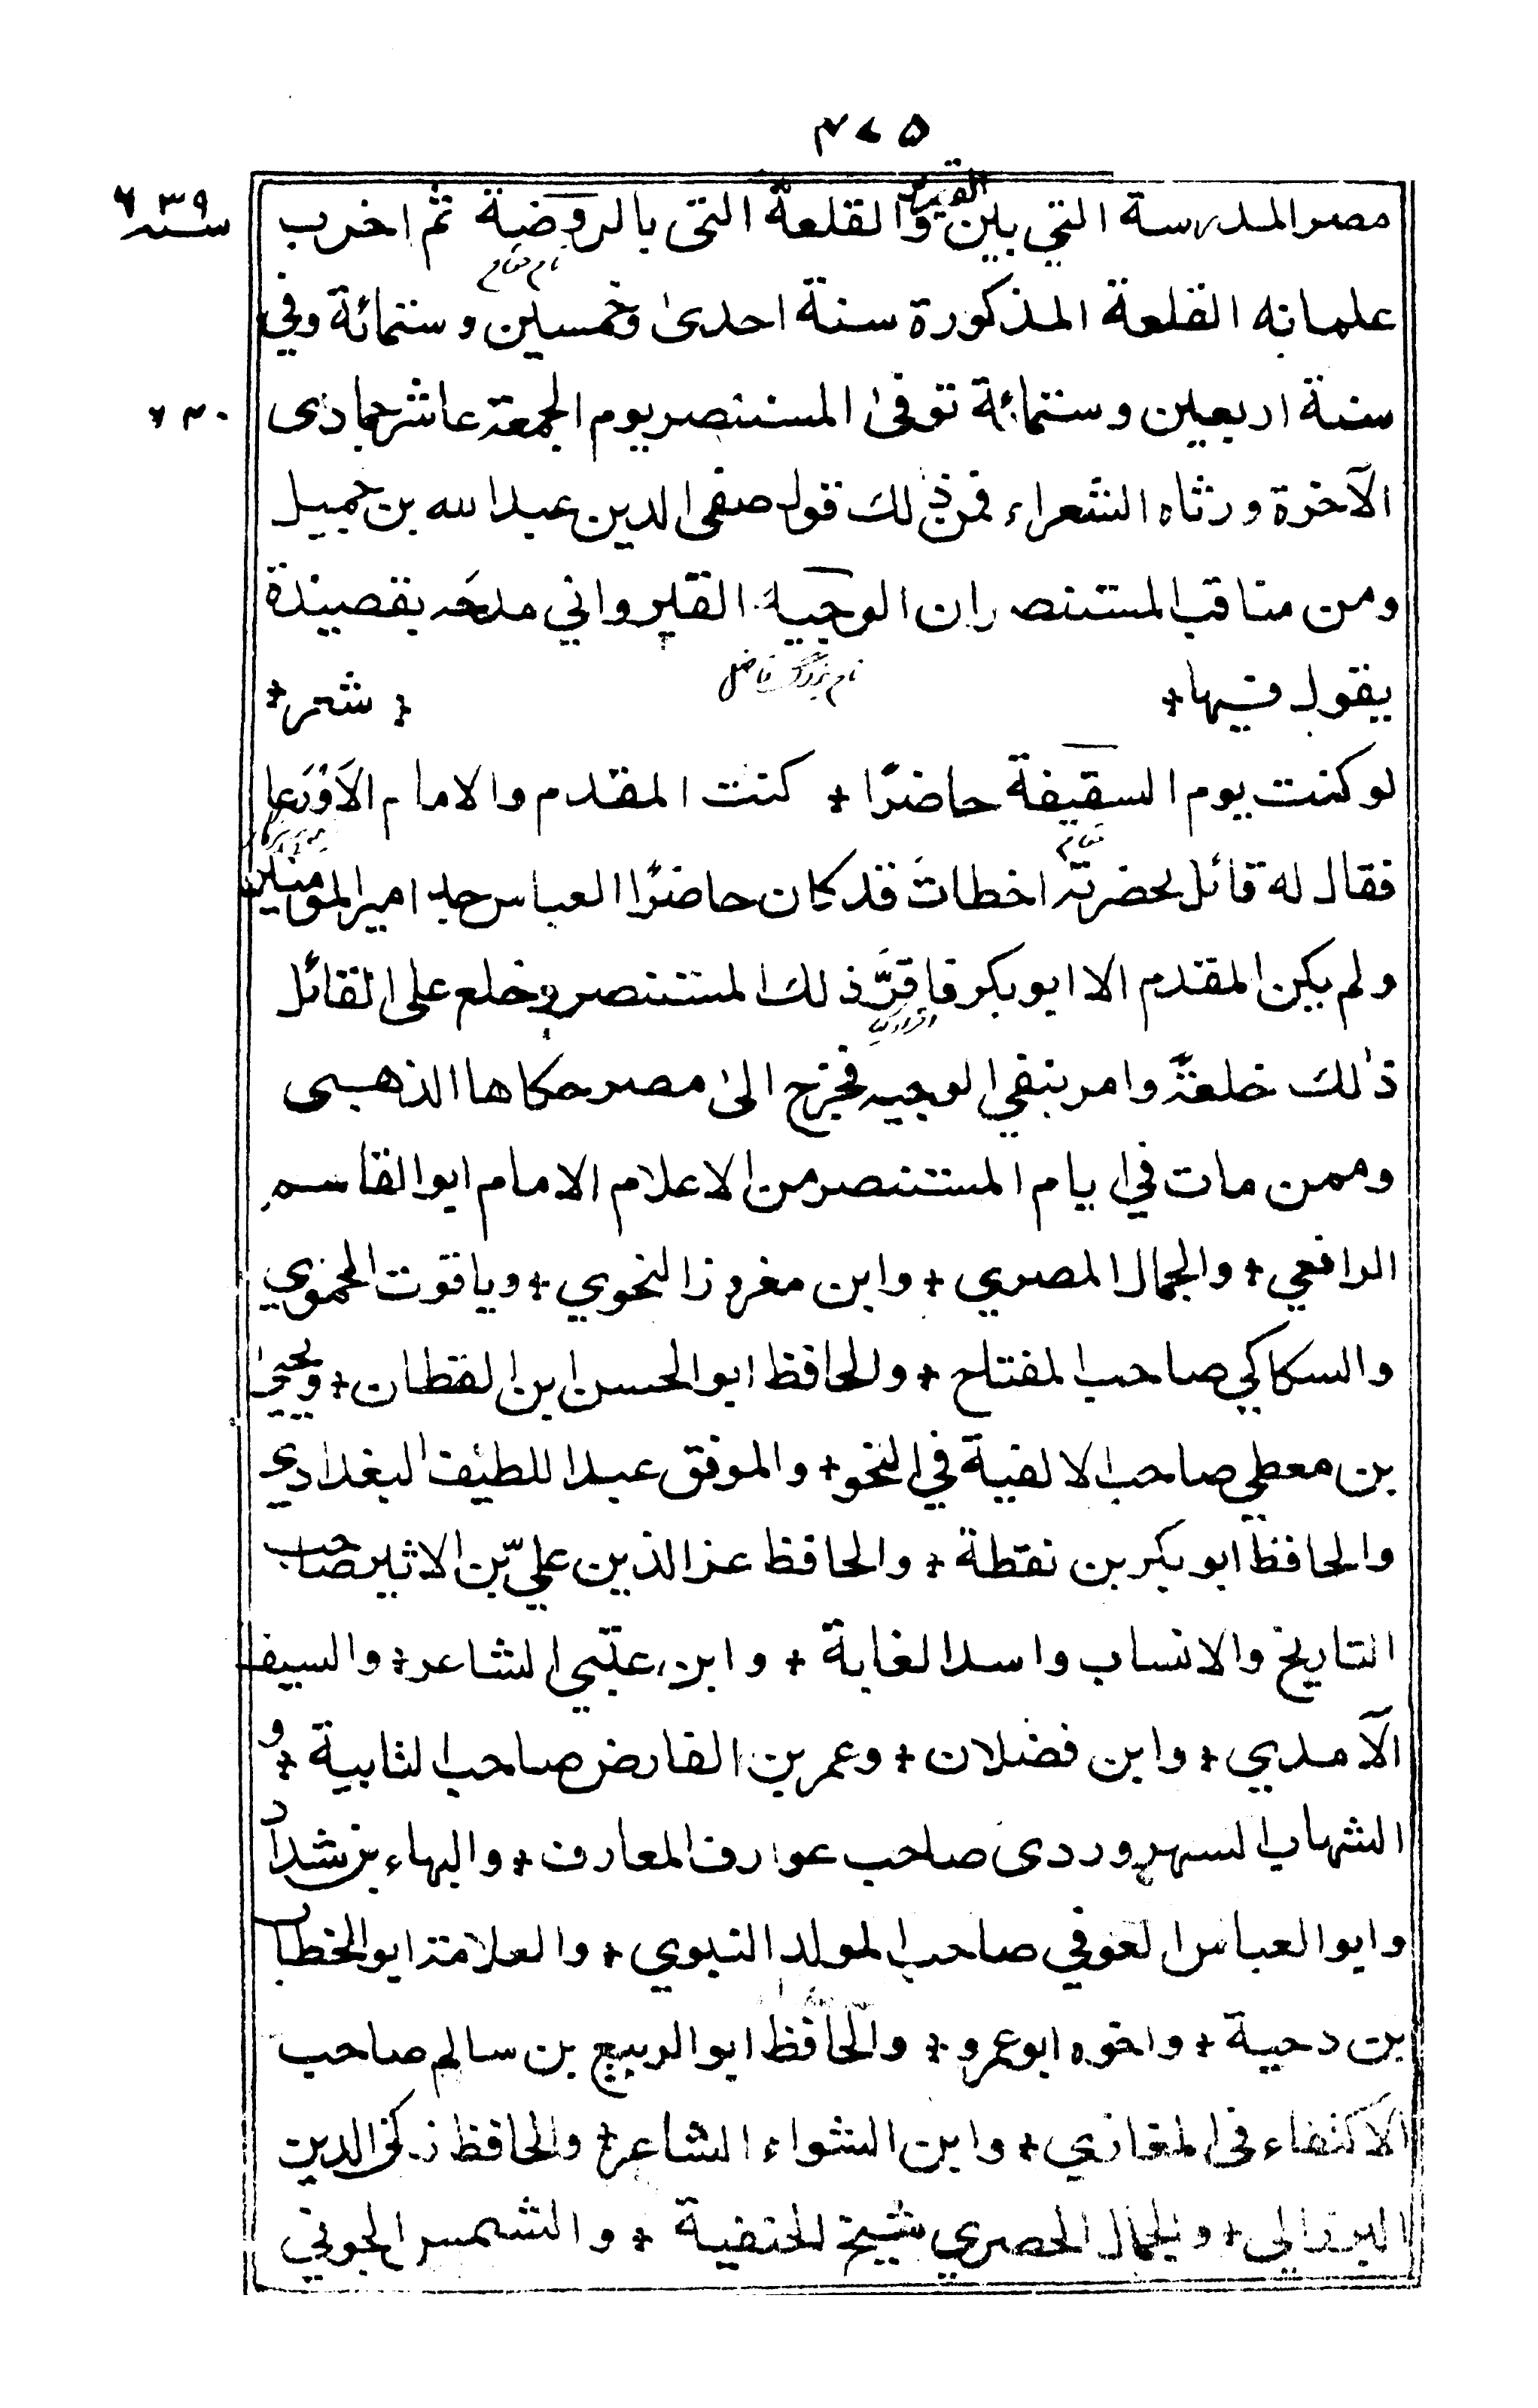 ٤٧٥
سنه ٦٣٩
مصر المدرسة التي بين القصرين والقلعة التى بالروضة ثم اخرب
نام مقام
غلمانه القلعة المذكورة سنة احدىٰ وخمسين وستمائة وفي
سنة اربعين وستمائة توفىٰ المستنصر يوم الجمعة عاشر جمادى
٦٤٠
الآخرة ورثاه الشعراء فمن ذلك قول صفى الدين عبد الله بن جميل
ومن مناقب المستنصر ان الوجيه القيرواني مدحه بقصيدة
نام بزرگ فاضل
يقول فيها + + شعر +
لو كنت يوم السقيفة حاضرًا + كنت المقدم والامام الاَوْرَعا
مقام
فقال له قائل بحضرته اخطاتَ قد كان حاضرًا العباس جد امير المؤمنين
ولم يكن المقدم الا ابو بكر فاقرَّ ذلك المستنصر وخلع على القائل
اقرار کیا
ذٰلك خلعةً وامر بنفي الوجيه فخرج الىٰ مصر حكاها الذهبى
وممن مات في ايام المستنصر من الاعلام الامام ابو القاسم
الرافعي + والجمال المصري + وابن مغروز النحوي + وياقوت الحموي
والسكاكي صاحب المفتاح + والحافظ ابو الحسن ابن القطان + ويحيىٰ
بن معطي صاحب الالفية في النحو + والموفق عبد اللطيف البغدادي
والحافظ ابو بكر بن نقطة + والحافظ عز الدين عليّ بن الاثير صاحب
التاريخ والانساب واسد الغابة + وابن عتبي الشاعر + والسيف
الآمدي + وابن فضلان + وعمر بن الفارض صاحب التايية + و
الشهاب السهروردى صاحب عوارف المعارف + والبهاء بن شداد
وابو العباس العوفي صاحب المولد النبوي + والعلامة ابو الخطاب
بن دحية + واخوه ابو عمرو + والحافظ ابو الربيع بن سالم صاحب
الاكتفاء في المغازي + وابن الشواء الشاعر + والحافظ زكي الدين
البرزالي + والجمال الحصري شيخ الحنفية + والشمس الجوني